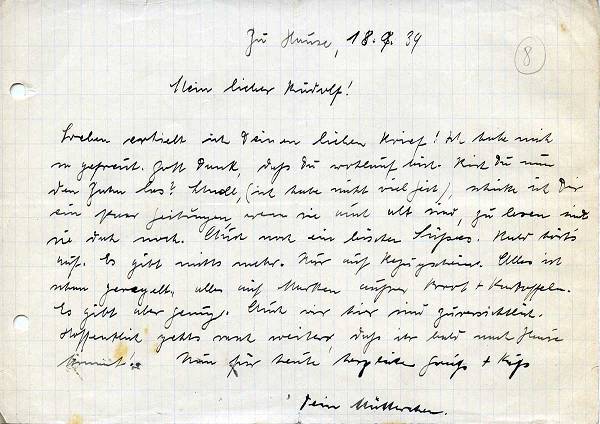 Zu Hause, 18.9.39
8
Mein lieber Rudolf!
Soeben erhielt ich Deinen lieben Brief! Ich habe mich
so gefreut. Gott Dank, daß Du wohlauf bist. Bist Du nun
den Zahn los? Schnell, (ich habe nicht viel Zeit), schicke ich Dir
ein paar Zeitungen, wenn sie auch alt sind, zu lesen sind
sie doch noch. Auch noch ein bischen Süßes. Bald hört's
auf. Es gibt nichts mehr. Nur auf Bezugscheine. Alles ist
schon geregelt, alles auf Marken außer Brot + Kartoffeln.
Es gibt aber genug. Auch wir hier sind zuversichtlich.
Hoffentlich gehts rasch weiter, daß ihr bald nach Hause
kommt! Nun für heute herzliche Grüße + Kuß
Dein Mütterchen.